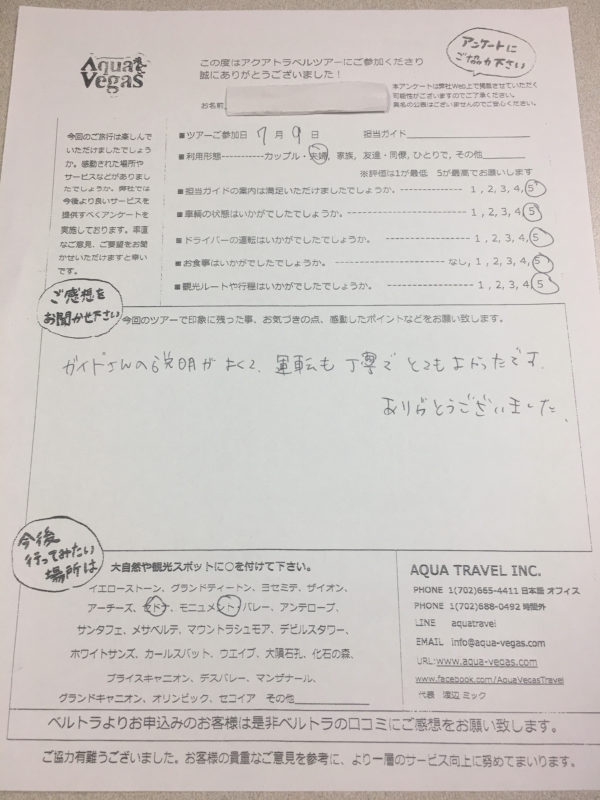 Aqua Vegas
この度はアクアトラベルツアーにご参加くださり
誠にありがとうございました！
アンケートに
ご協力下さい
本アンケートは弊社Web上で掲載させていただく
可能性がございますのでご了承ください。
実名の公表はございませんのでご安心ください。
お名前
今回のご旅行は楽しんで
いただけましたでしょう
か。感動された場所や
サービスなどがありまし
たでしょうか。弊社では
今後より良いサービスを
提供すべくアンケートを
実施しております。率直
なご意見、ご要望をお聞
かせいただけますと幸い
です。
■ツアーご参加日 7 月 9 日 担当ガイド
■利用形態-----------カップル・夫婦, 家族, 友達・同僚, ひとりで, その他
※評価は1が最低 5が最高でお願いします
■担当ガイドの案内は満足いただけましたでしょうか。 1 , 2, 3, 4, 5
■車輌の状態はいかがでしたでしょうか。 1 , 2, 3, 4, 5
■ドライバーの運転はいかがでしたでしょうか。 1 , 2, 3, 4, 5
■お食事はいかがでしたでしょうか。 なし, 1 , 2, 3, 4, 5
■観光ルートや行程はいかがでしたでしょうか。 1 , 2, 3, 4, 5
ご感想を
お聞かせ下さい
今回のツアーで印象に残った事、お気づきの点、感動したポイントなどをお願い致します。
ガイドさんの説明がよくて、運転も丁寧でとてもよかったです。
ありがとうございました。
今後
行ってみたい
場所は
大自然や観光スポットに○を付けて下さい。
イエローストーン、グランドティートン、ヨセミテ、ザイオン、
アーチーズ、セドナ、モニュメントバレー、アンテロープ、
サンタフェ、メサベルテ、マウントラシュモア、デビルスタワー、
ホワイトサンズ、カールスバット、ウエイブ、大隕石孔、化石の森、
ブライスキャニオン、デスバレー、マンザナール、
グランドキャニオン、オリンピック、セコイア その他
AQUA TRAVEL INC.
PHONE 1(702)665-4411 日本語 オフィス
PHONE 1(702)688-0492 時間外
LINE aquatravel
EMAIL info@aqua-vegas.com
URL:www.aqua-vegas.com
www.facebook.com/AquaVegasTravel
代表 渡辺 ミック
ベルトラよりお申込みのお客様は是非ベルトラの口コミにご感想をお願い致します。
ご協力有難うございました。お客様の貴重なご意見を参考に、より一層のサービス向上に努めてまいります。